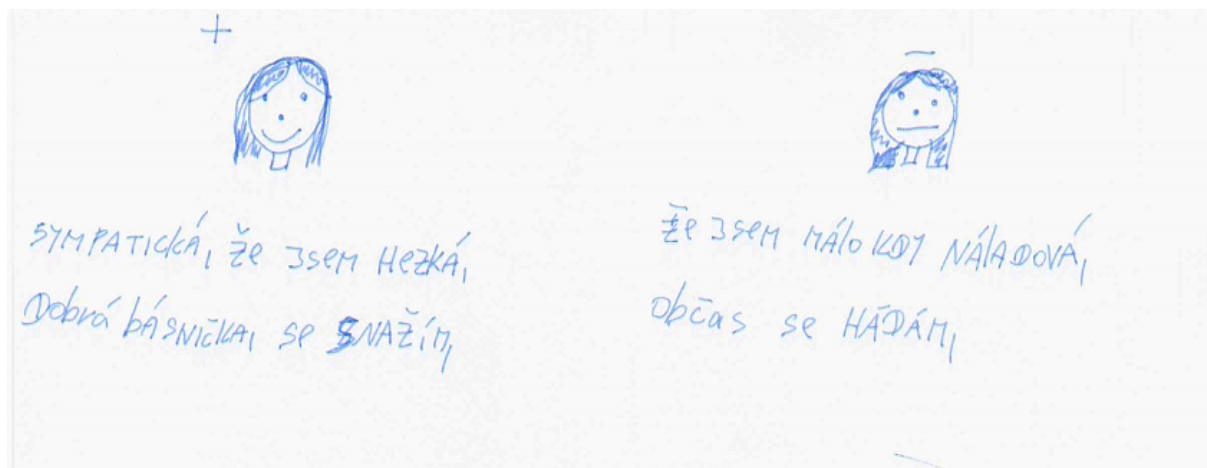 +
SYMPATICKÁ, že JSEM HEZKÁ,
Dobrá báSNIČKA, se SNAŽÍM,
–
že JSEM MÁLO KDY NÁLADOVÁ,
občas se HÁDÁM,